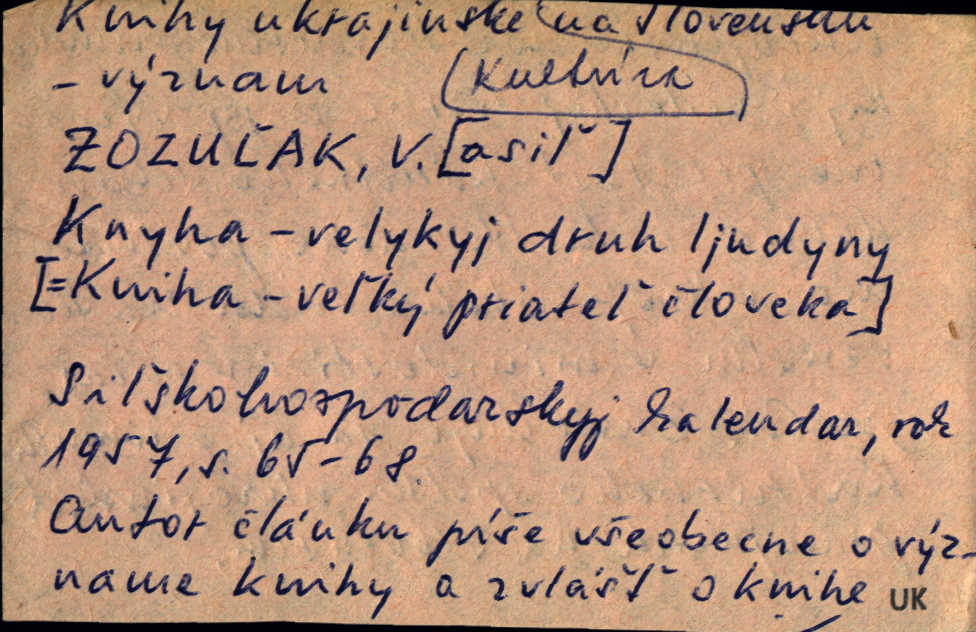 Knihy ukrajinské na Slovensku
- význam Kultúra
ZOZUĽAK, V.[asiľ]
Knyha - velykyj druh ljudyny
[=Kniha - veľký priateľ človeka]
Siľskohospodarskyj kalendar, rok
1957, s. 65-68.
Autor článku píše všeobecne o výz-
name knihy a zvlášť o knihe
UK